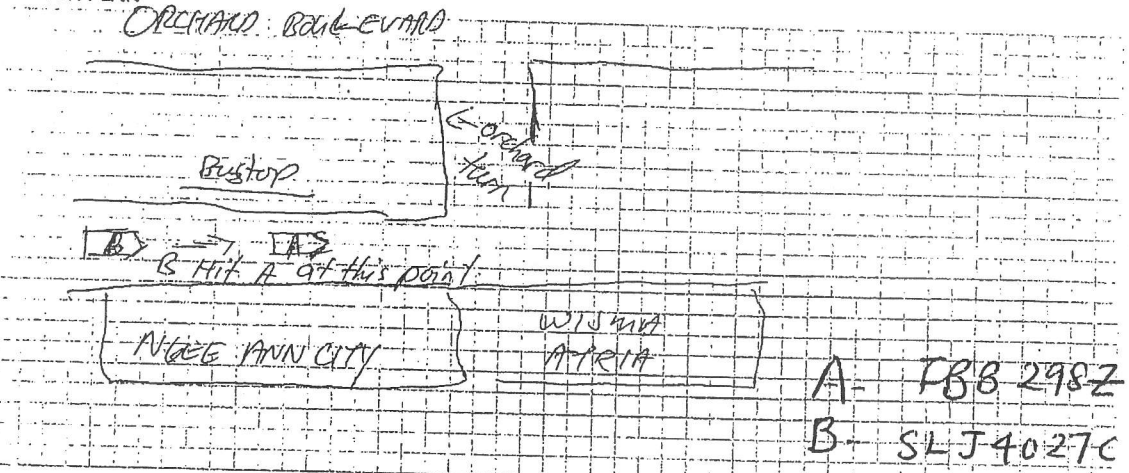 ORCHARD BOULEVARD
← orchard
turn
Bustop
B → A
B Hit A at this point.
NGEE ANN CITY
WISMA
ATRIA
A - FBB 298Z
B - SLJ4027C